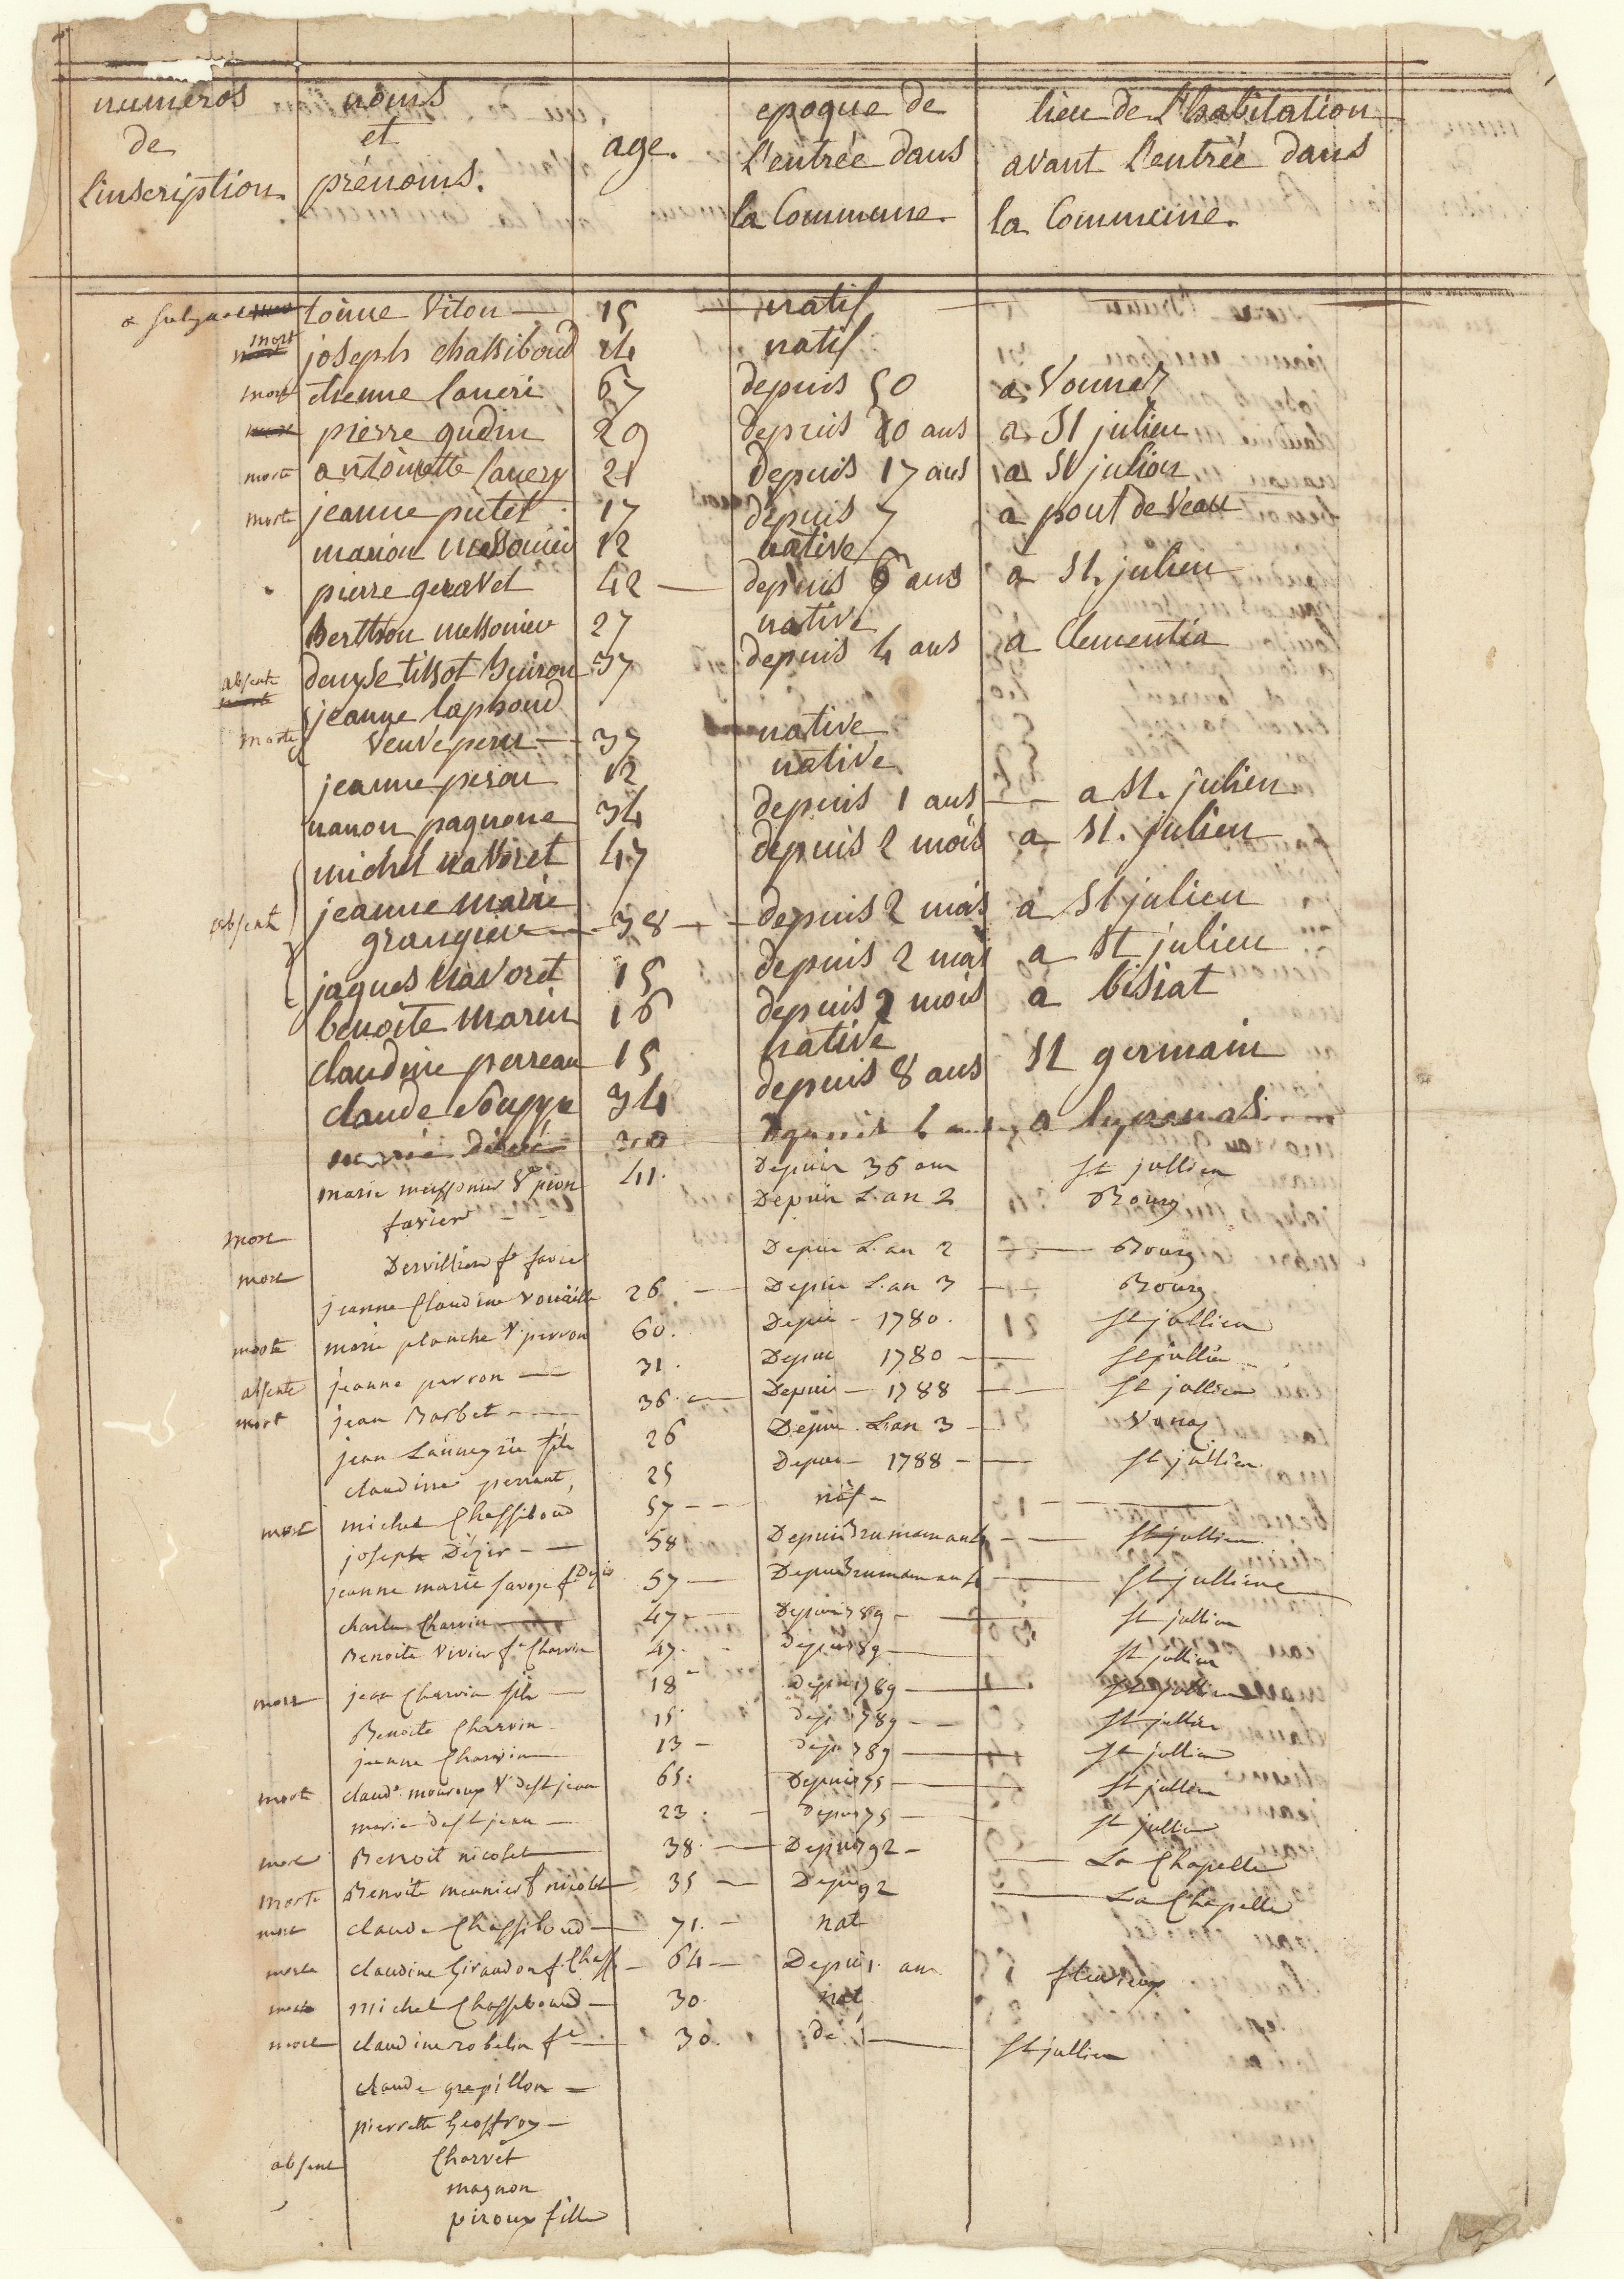 numéros noms
de et
l'inscription. prénoms. age. epoque de l'entrée dans la Commune. lieu de l'habitation avant l'entrée dans la Commune.
toinne Viton — 15 — natif —
mort joseph chassiboud 24 natif
mort etienne laueri 67 depuis 50 a Vonnas
pierre gudin 29 depuis 20 ans a St julien
morte antoinette lauery 21 depuis 17 ans a St julien
morte jeanne putet 17 depuis 7 a pont de veau
marion messonier 12 native
pierre geravet 42 — depuis 6 ans a St. julien
berthon messonier 27 native
absente denyse tissot guiron 37 depuis 4 ans a Clementia
jeanne laphoud
morte veuve peru — 37 native
jeanne peron 12 native
nanon pagnone 34 depuis 1 ans — a St. julien
michel navoret 47 depuis 2 mois a St. julien
absent jeanne marie
grangier — 38 — depuis 2 mois a St julien
jaques navoret 15 depuis 2 mois a St julien
benoite marin 16 depuis 2 mois a bisiat
claudine perreau 15 native
claude souppe 34 depuis 8 ans St germain
30 a
marie meissonier Ve pion 41. Depuis 36 ans St jullien
mort favier — Depuis L'an 2 Bourg
mort Dervillien fe favier Depuis L'an 2 — Bourg
jeanne Claudine 26 — Depuis L'an 3 — Bourg
morte marie planche Ve perron 60. Depuis - 1780. St jullien
absente jeanne perron — 31. Depuis 1780 — St jullien
mort jean Barbet — 36. — Depuis — 1788 — St jullien
jean fils 26 Depuis L'an 3 — Vonas
claudine perraut, 25 Depuis — 1788 — St jullien
mort michel Chassiboud 57 — natif —
joseph Déjer — 58 Depuis — St jullien
jeanne marie savoye fe 57 — Depuis — St jullien
charle Charvin — 47 — Depuis 789 — St jullien
Benoite Vivier fe Charvin 47. Depuis 89 — St jullien
mort jean Charvin fils — 18 Depuis 1789 — St jullien
Benoite Charvin 15 dep. 1789 — St jullien
jeanne Charvin — 13 — dep. 789 — St jullien
morte claude. mouroux Ve de St jean 65. Depuis 75 — St jullien
marie de St jean — 23. — depuis 75 — St jullien
mort Benoit nicolet — 38. — Depuis 92 — La Chapelle
morte Benoite meunier f nicolet 35 — Depuis 92 — La Chapelle
mort claude Chassiboud — 71. — nat
morte claudine Giraudon f. Chass — 64 — Depuis ans fleurieux
mort michel Chassiboud — 30. nat
morte claudine robelin fe — 30. de — St jullien
claude grepillon —
pierrette Geoffroy —
absent Charvet
magnon
piroux fille